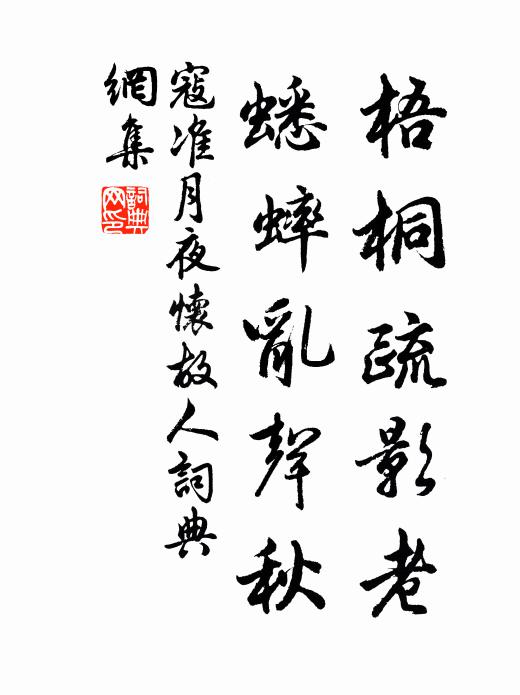 梧桐疏影老
蟋蟀亂聲秋
寇准月夜懷故人詞典
網集
詞典網印